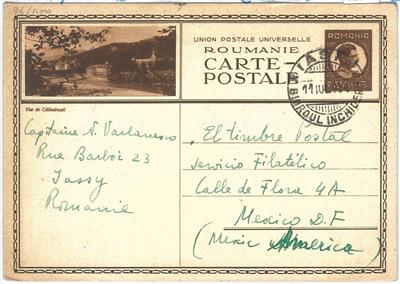 UNION POSTALE UNIVERSELLE
ROUMANIE
CARTE
POSTALE
ROMANIA
IAȘI
11 IUL
BIUROUL INCHEIER
Vue de Călimănești
Capitaine N. Varlanesco
Rue Barboi 23
Jassy
Romanie
"El timbre Postal
Servicio Filatélico
Calle de Flora 4A
Mexico D.F
(Mexic America)